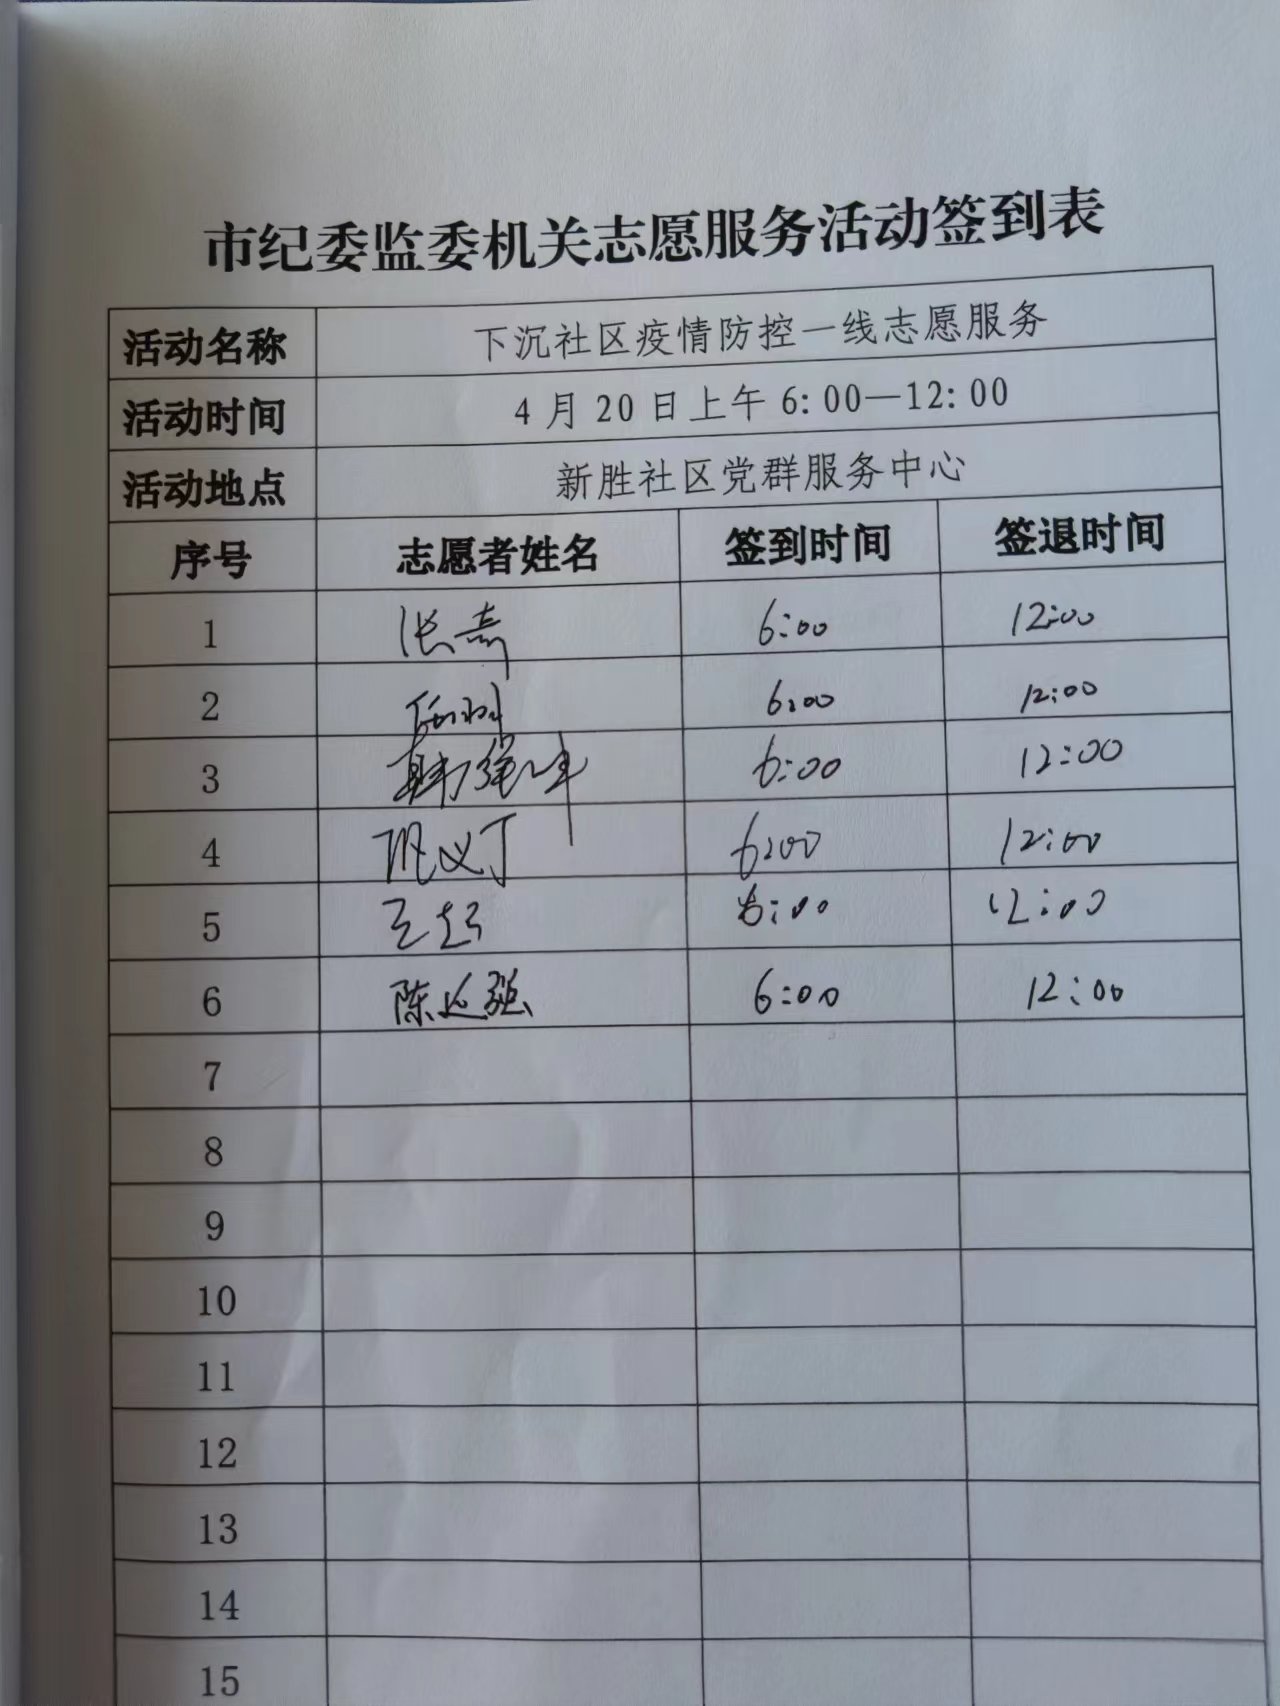 市纪委监委机关志愿服务活动签到表
活动名称 下沉社区疫情防控一线志愿服务
活动时间 4月20日上午6:00—12:00
活动地点 新胜社区党群服务中心
序号 志愿者姓名 签到时间 签退时间
1 6:00 12:00
2 6:00 12:00
3 6:00 12:00
4 6:00 12:00
5 王超 6:00 12:00
6 陈延强 6:00 12:00
7
8
9
10
11
12
13
14
15